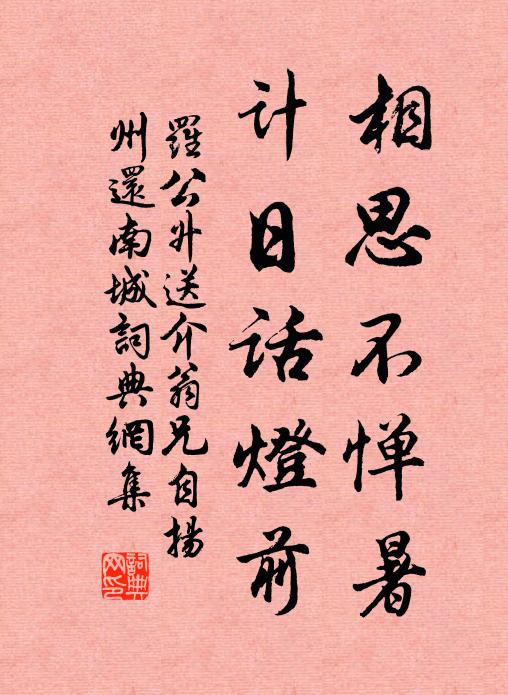 相思不惮暑
计日话燈前
羅公升送介翁兄自揚
州還南城詞典網集
詞典網印